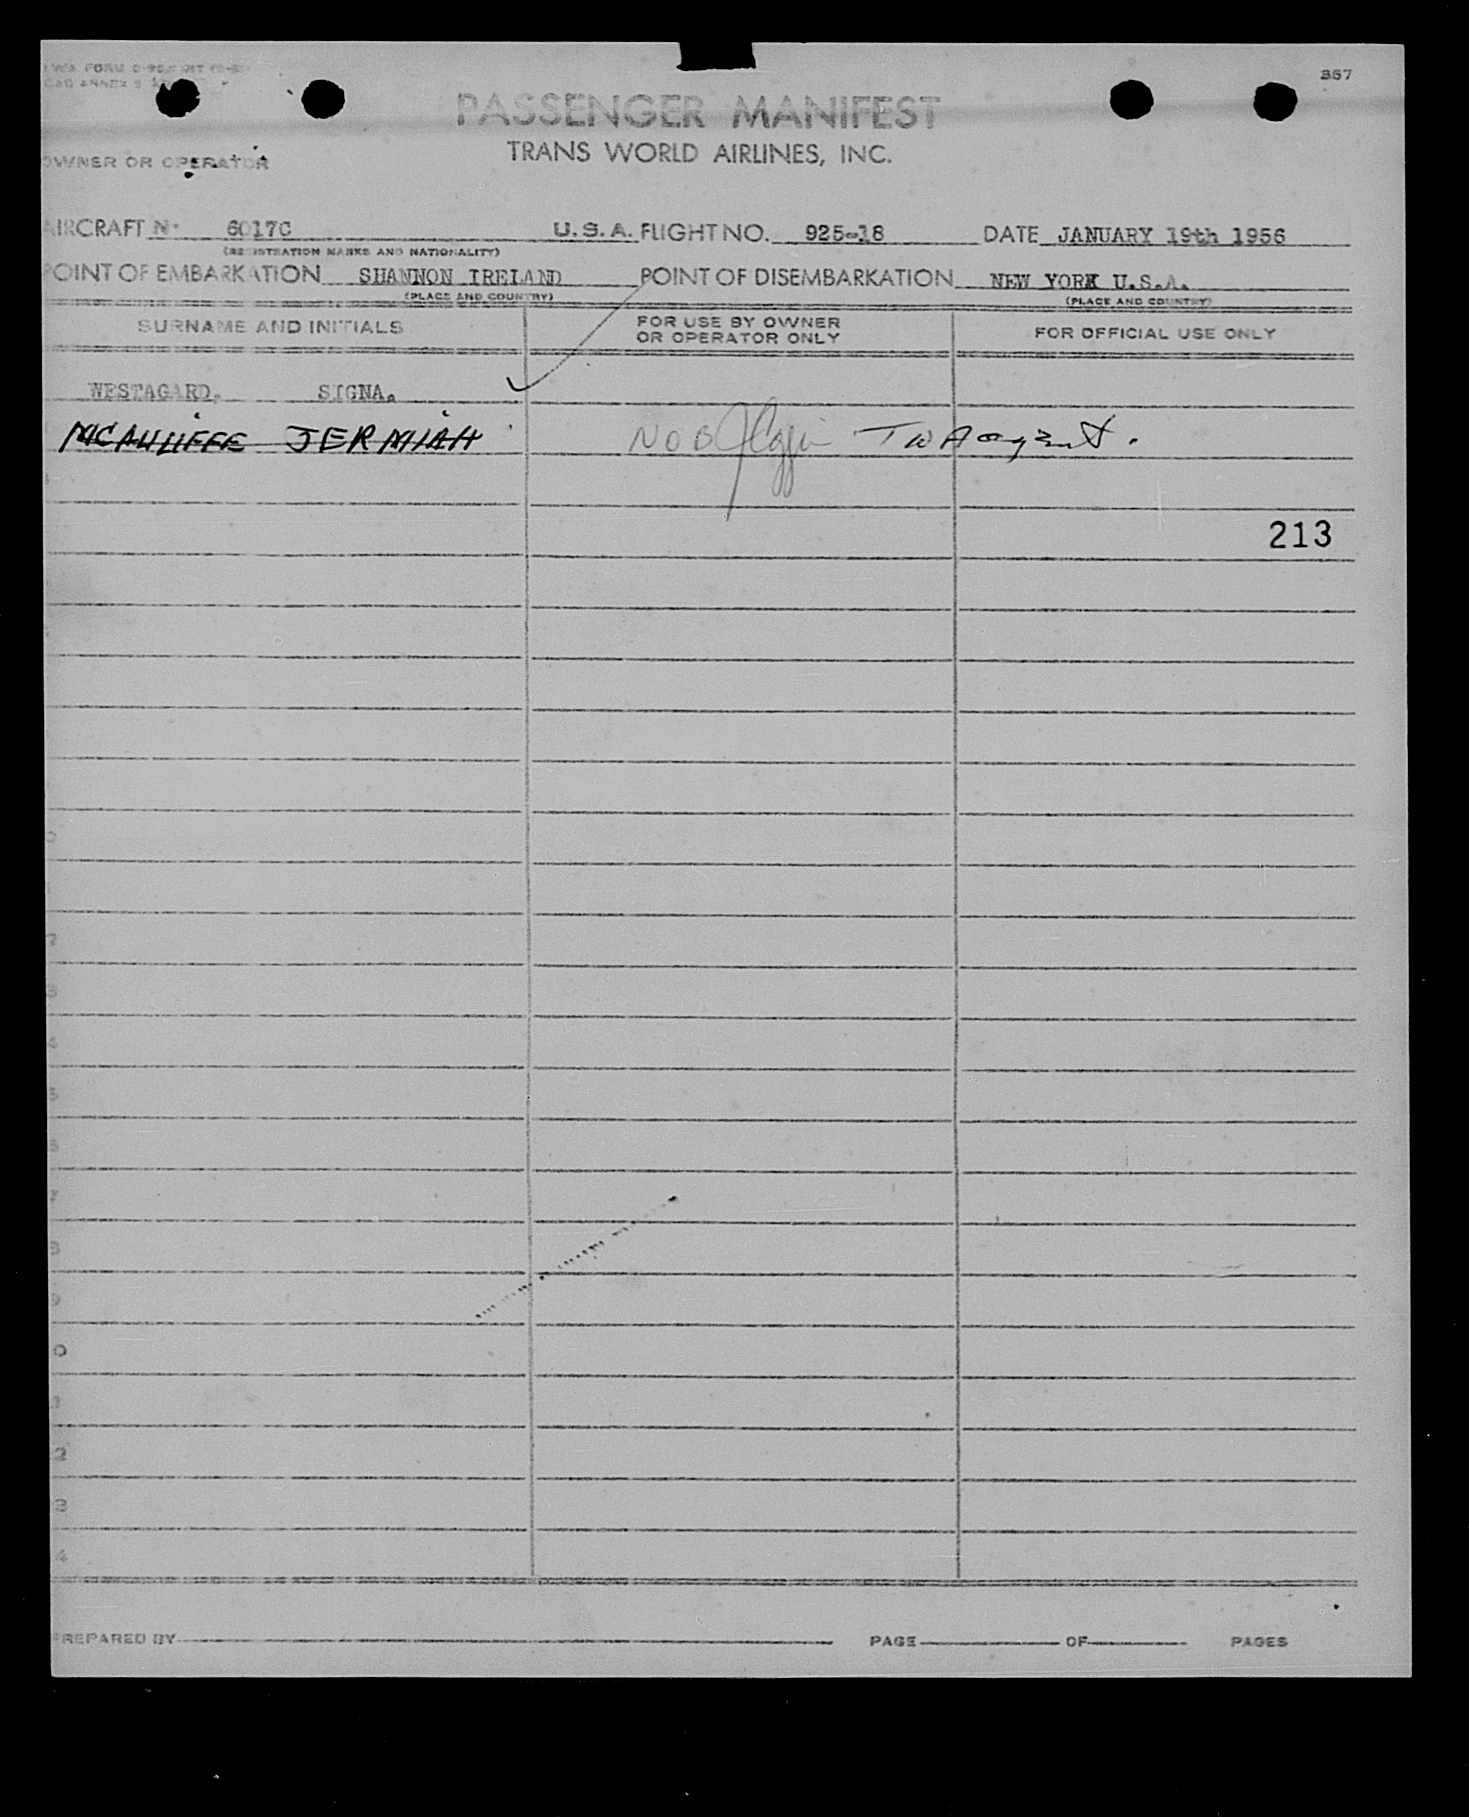 357
PASSENGER MANIFEST
OWNER OR OPERATOR
TRANS WORLD AIRLINES, INC.
AIRCRAFT N- 6017C U.S.A. FLIGHT NO. 925-18 DATE JANUARY 19th 1956
(REGISTRATION MARKS AND NATIONALITY)
POINT OF EMBARKATION SHANNON IRELAND POINT OF DISEMBARKATION NEW YORK U.S.A.
(PLACE AND COUNTRY) (PLACE AND COUNTRY)
SURNAME AND INITIALS FOR USE BY OWNER OR OPERATOR ONLY FOR OFFICIAL USE ONLY
WESTAGARD, SIGNA.
MCAULIFFE JERMIAH NOB TWA agent.
213
PREPARED BY PAGE OF PAGES